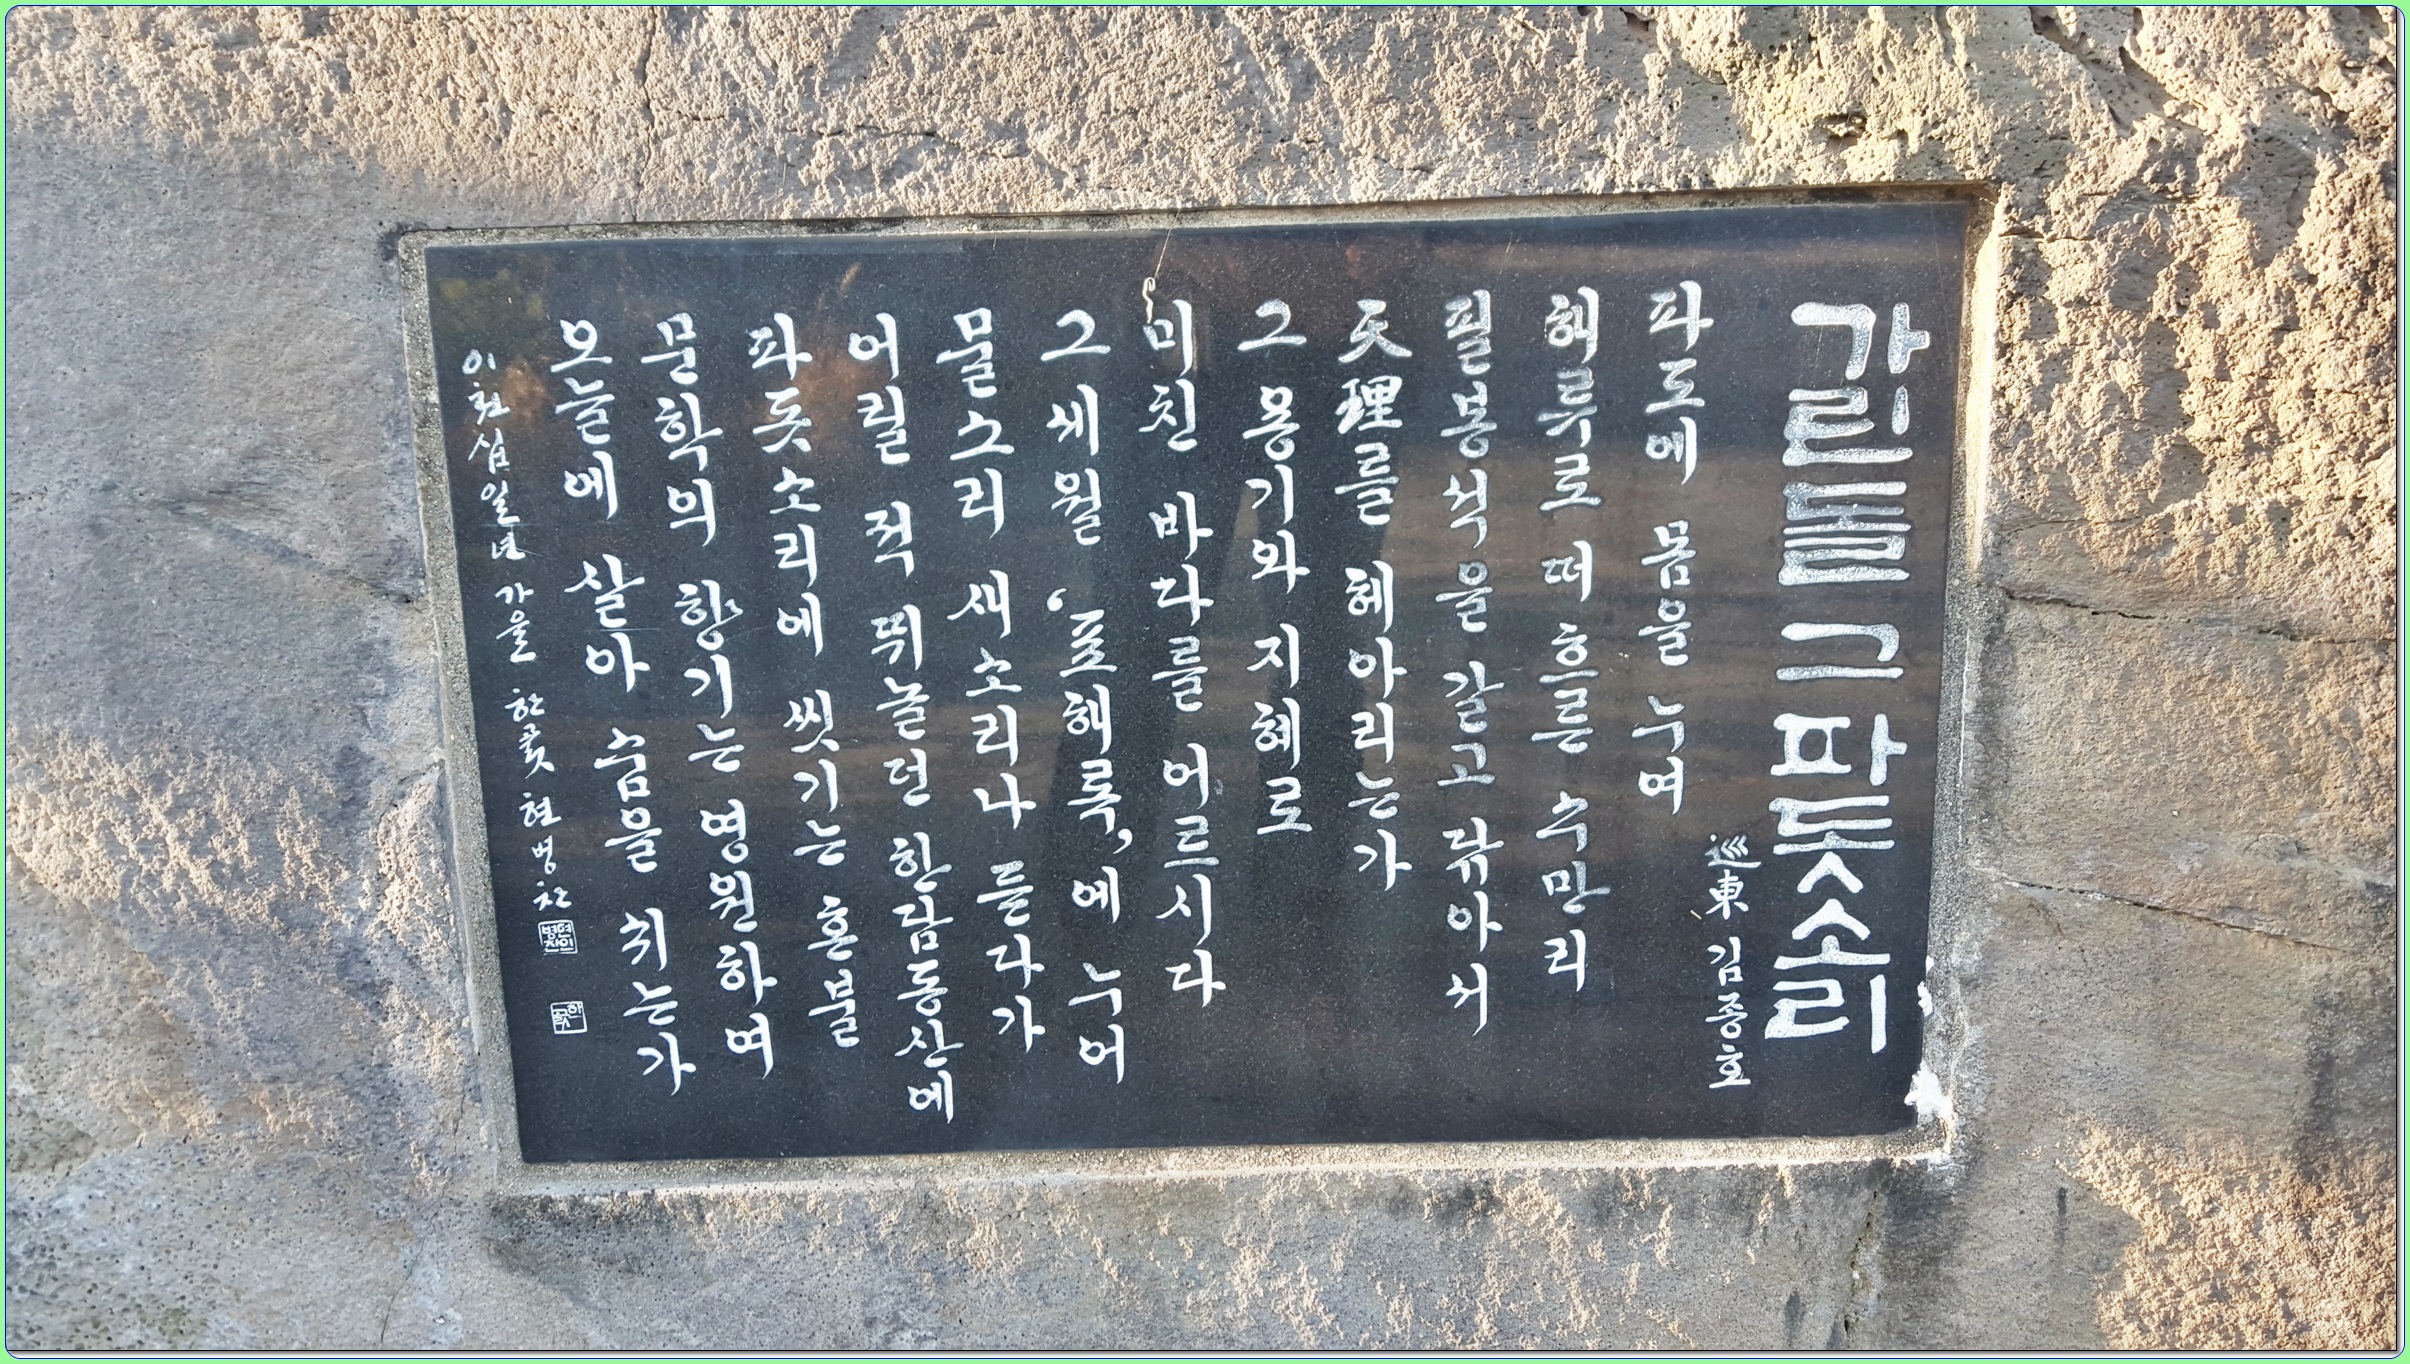 가린돌 그 파돗소리
巡東 김종호
파도에 몸을 누여
해류로 떠 흐른 수만리
필봉석을 갈고 닦아서
天理를 헤아리는가
그 용기와 지혜로
미친 바다를 어르시다
그 세월 ‘표해록’에 누어
물소리 새소리나 듣다가
어릴 적 뛰놀던 한담동산에
파돗소리에 씻기는 혼불
문학의 향기는 영원하여
오늘에 살아 숨을 쉬는가
이천십일년 가을 한곬 현병찬